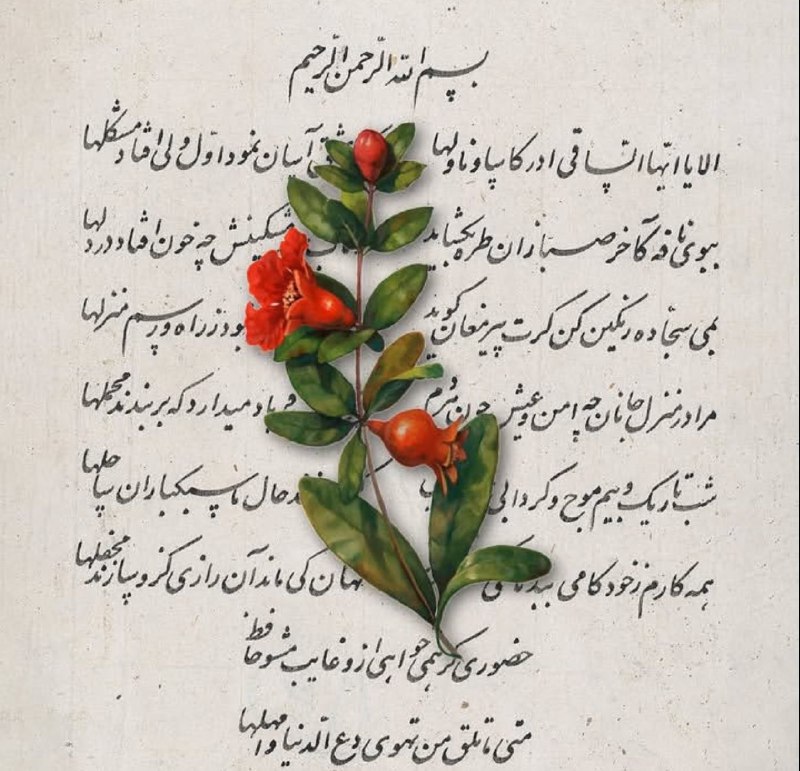 بسم الله الرحمن الرحیم
الا یا ایها الساقی ادر کاسا و ناولها آسان نمود اول ولی افتاد مشکلها
ببوی نافه کاخر صبا زان طره بگشاید مشکینش چه خون افتاد در دلها
بمی سجاده رنگین کن گرت پیر مغان گوید بود ز راه و رسم منزلها
مرا در منزل جانان چه امن و عیش چون هردم فریاد میدارد که بربندید محملها
شب تاریک و بیم موج و گردابی حال ما سبکباران ساحلها
همه کارم ز خود کامی ببدنامی نهان کی ماند آن رازی کزو سازند محفلها
حضوری گر همی خواهی ازو غایب مشو حافظ
متی ما تلق من تهوی دع الدنیا و اهملها